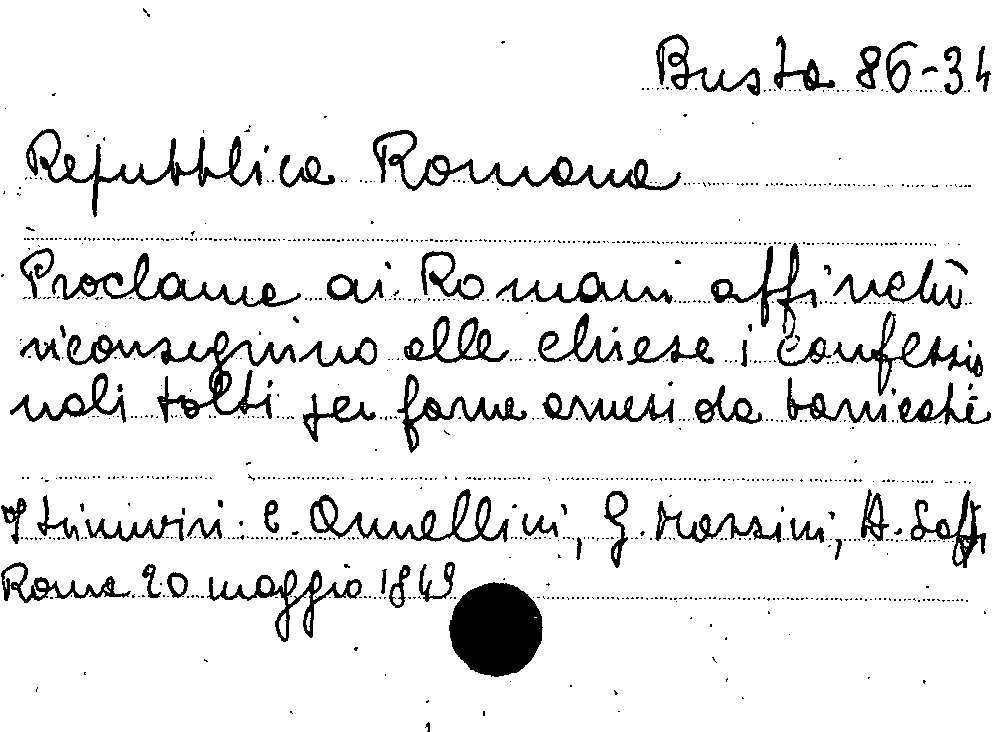 Busta 86-34
Repubblica Romana
Proclama ai Romani affinchè
riconsegnino alle chiese i confessio
nali tolti per farne arnesi da barricate
I triumviri: C. Armellini, G. Mazzini, A. Saffi
Roma 20 maggio 1849